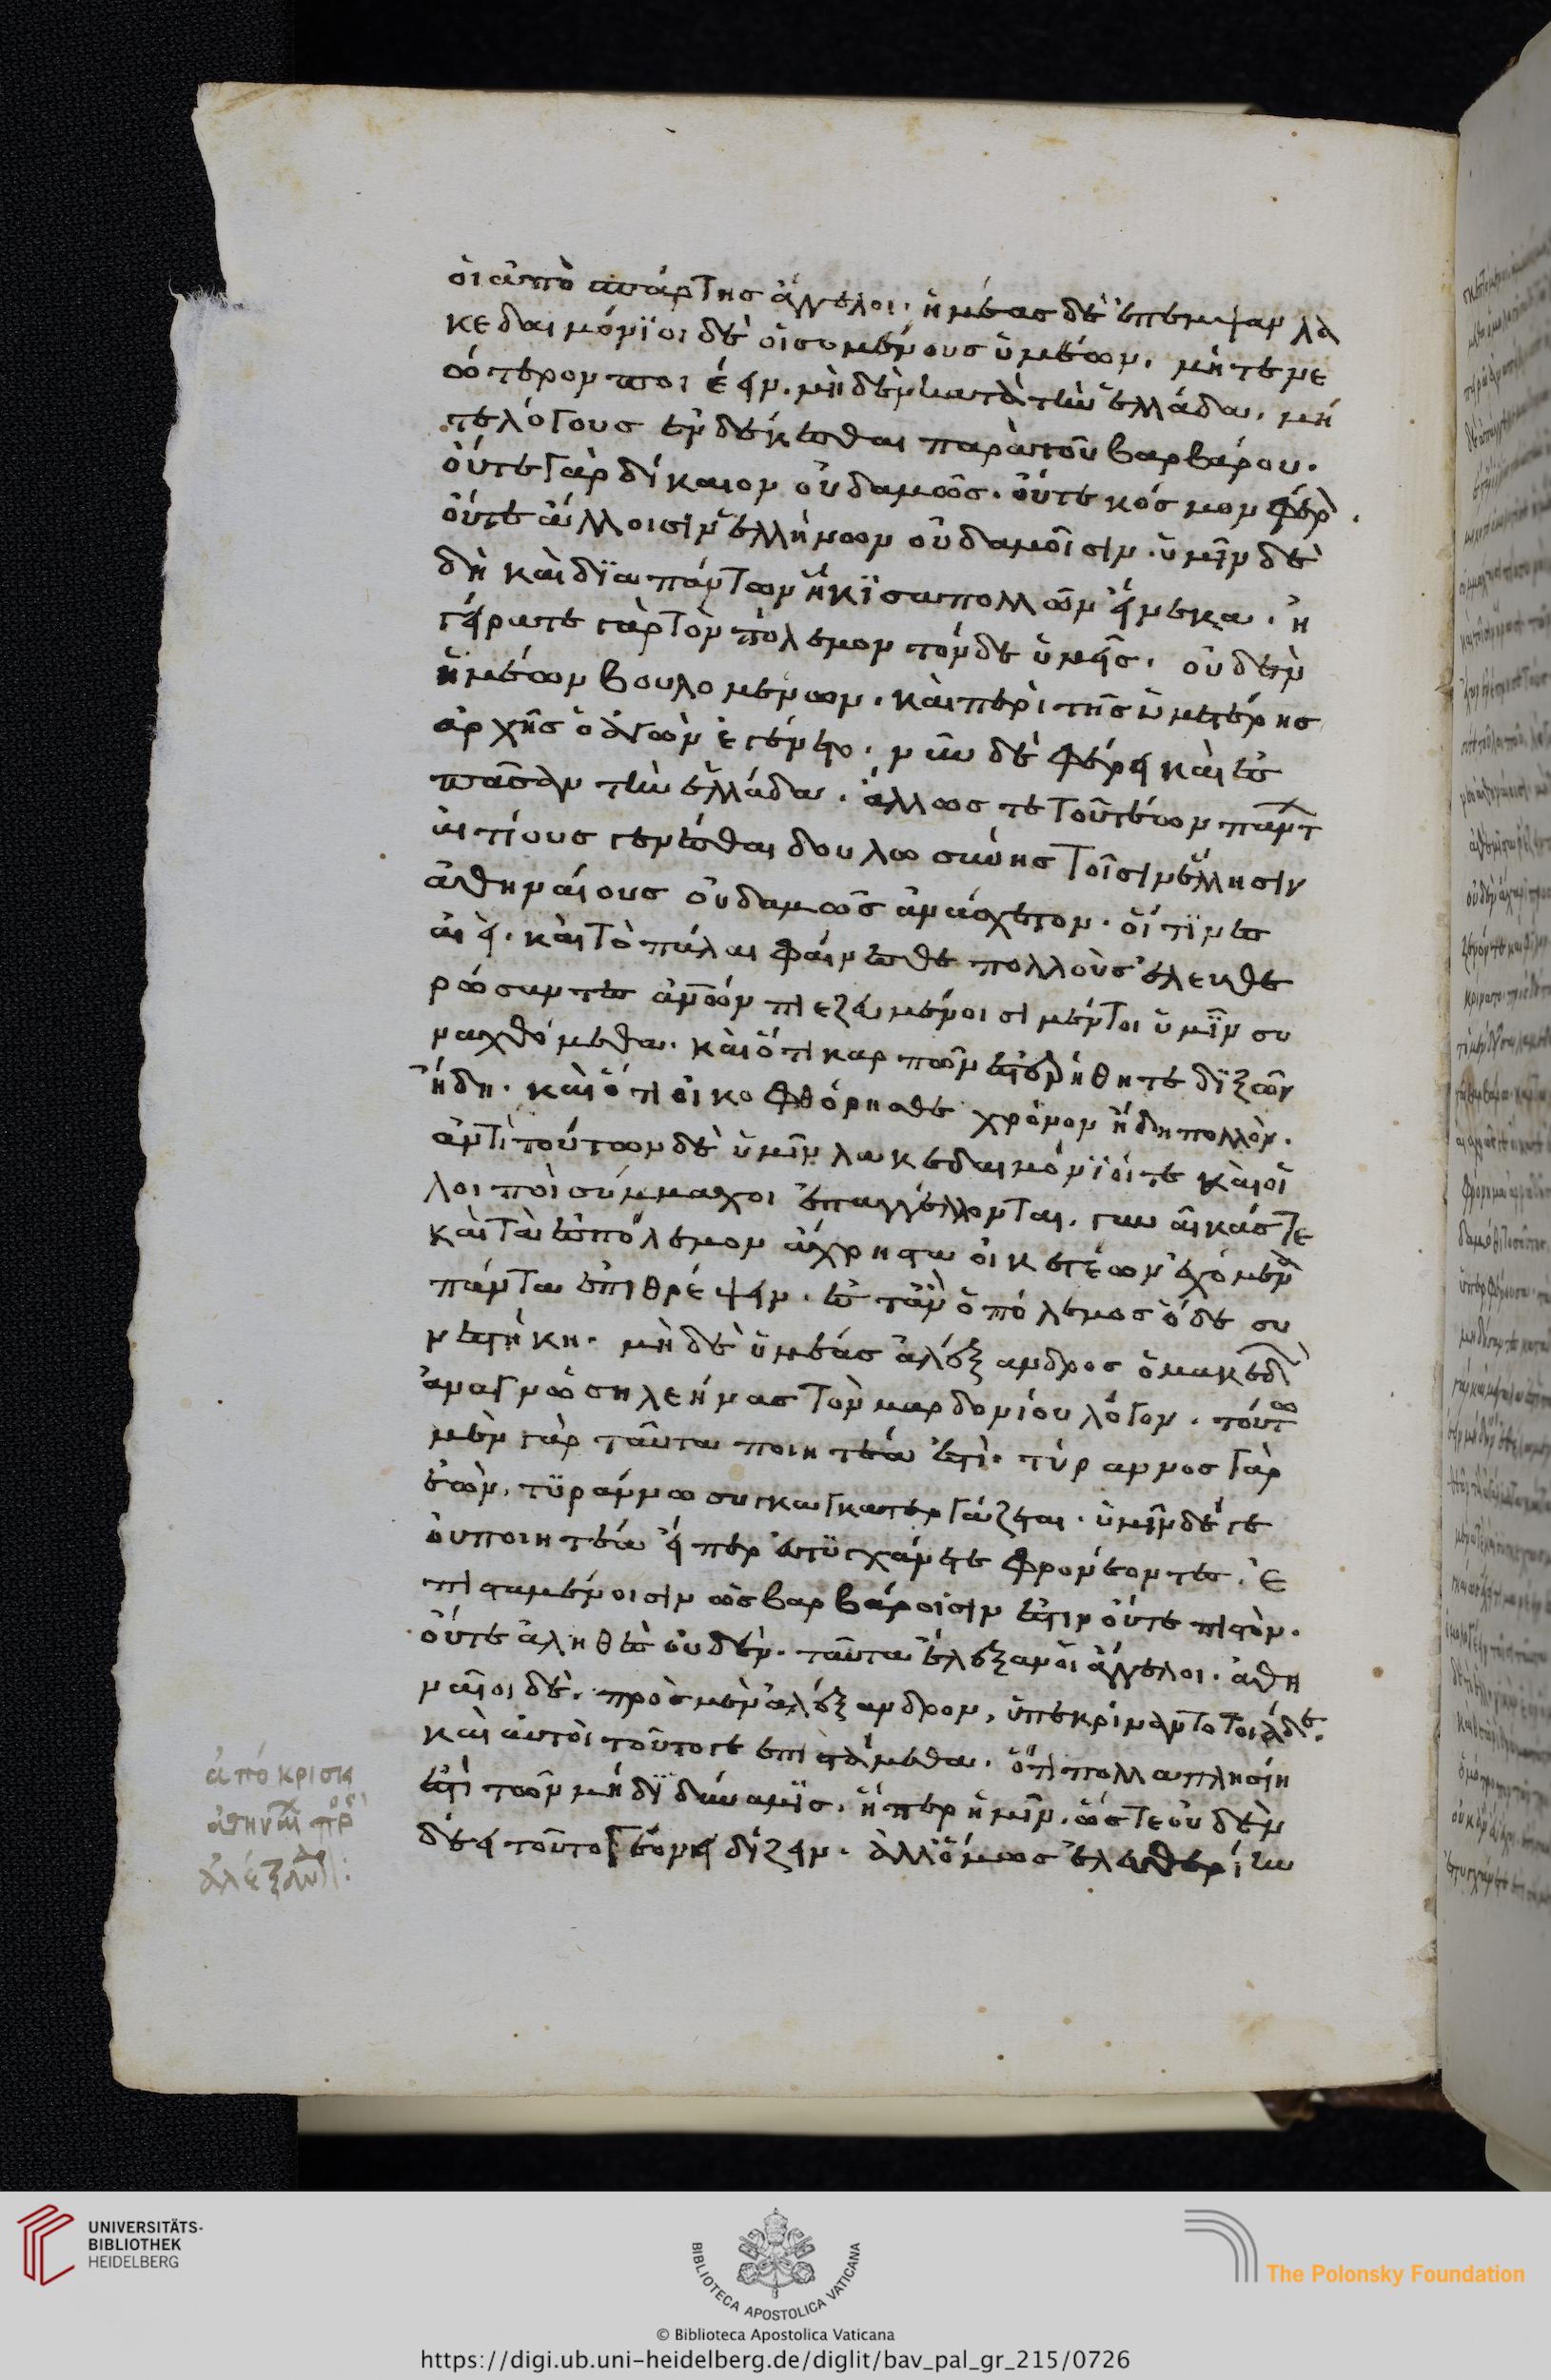 οἱ ἀπὸ σπάρτης ἄγγελοι· ἡμέας δὲ ἔπεμψαν λα
κεδαιμόνιοι δεησομένους ὑμέων. μήτε νε
ώτερον ποιέειν μηδὲν κατὰ τὴν ἑλλάδα. μή
τε λόγους ἐνδέκεσθαι παρὰ τοῦ βαρβάρου.
οὔτε γὰρ δίκαιον οὐδαμῶς. οὔτε κόσμον φέρον.
οὔτε ἄλλοισιν ἑλλήνων οὐδαμοῖσιν. ὑμῖν δὲ
δὴ καὶ διὰ πάντων ἥκιστα πολλῶν εἵνεκα. ἠ
γείρατε γὰρ τὸν πόλεμον τόνδε ὑμεῖς. οὐδὲν
ἡμέων βουλομένων. καὶ περὶ τῆς ὑμετέρης
ἀρχῆς ὁ ἀγὼν ἐγένετο. νῦν δὲ φέρει καὶ ἐς
πᾶσαν τὴν ἑλλάδα. ἄλλως τε τουτέων πάντων
αἰτίους γενέσθαι δουλοσύνης τοῖσιν ἕλλησιν
ἀθηναίους οὐδαμῶς ἀνάσχετον. οἵτινες
αἰεὶ. καὶ τὸ πάλαι φαίνεσθε πολλοὺς ἐλευθε
ρώσαντες ἀνθρώπων πιεζευμένοισι μέντοι ὑμῖν συ
ναχθόμεθα. καὶ ὅτι καρπῶν ἐστερήθητε διξῶν
ἤδη. καὶ ὅτι οἰκοφθόρησθε χρόνον ἤδη πολλόν.
ἀντὶ τούτων δὲ ὑμῖν λακεδαιμόνιοί τε καὶ οἱ
λοιποὶ σύμμαχοι ἐπαγγέλλονται. γυναῖκάς τε
καὶ τὰ ἐς πόλεμον ἄχρηστα οἰκετέων ἐχόμενα
πάντα ἐπιθρέψειν. ἔς τ' ἂν ὁ πόλεμος ὅδε συ
νεστήκῃ. μηδὲ ὑμέας ἀλέξανδρος ὁ μακεδὼν
ἀναγνώσῃ λεήνας τὸν μαρδονίου λόγον. τούτω
μὲν γὰρ ταῦτα ποιητέα ἐστί. τύραννος γὰρ
ἐὼν. τυράννω συγκατεργάζεται. ὑμῖν δέ γε
οὐ ποιητέα εἴ περ εὖ τυγχάνετε φρονέοντες. ἐ
πισταμένοισιν ὡς βαρβάροισιν ἐστιν οὔτε πιστὸν.
οὔτε ἀληθὲς οὐδέν. ταῦτα ἔλεξαν οἱ ἄγγελοι. ἀθη
ναῖοι δὲ. πρὸς μὲν ἀλέξανδρον, ὑπεκρίναντο τοιάδε.
καὶ αὐτοὶ τοῦτό γε ἐπιστάμεθα. ὅτι πολλαπλησίη
ἐστὶ τῶ μήδῳ δύναμις. ἤπερ ἡμῖν. ὥστε οὐδὲν
δέει τοῦτό γε ὀνειδίζειν. ἀλλ' ὅμως ἐλευθερίην
ἀπόκρισις
ἀθηναίων πρὸς
ἀλέξανδρον:
UNIVERSITÄTS-
BIBLIOTHEK
HEIDELBERG
BIBLIOTECA APOSTOLICA VATICANA
The Polonsky Foundation
© Biblioteca Apostolica Vaticana
https://digi.ub.uni-heidelberg.de/diglit/bav_pal_gr_215/0726